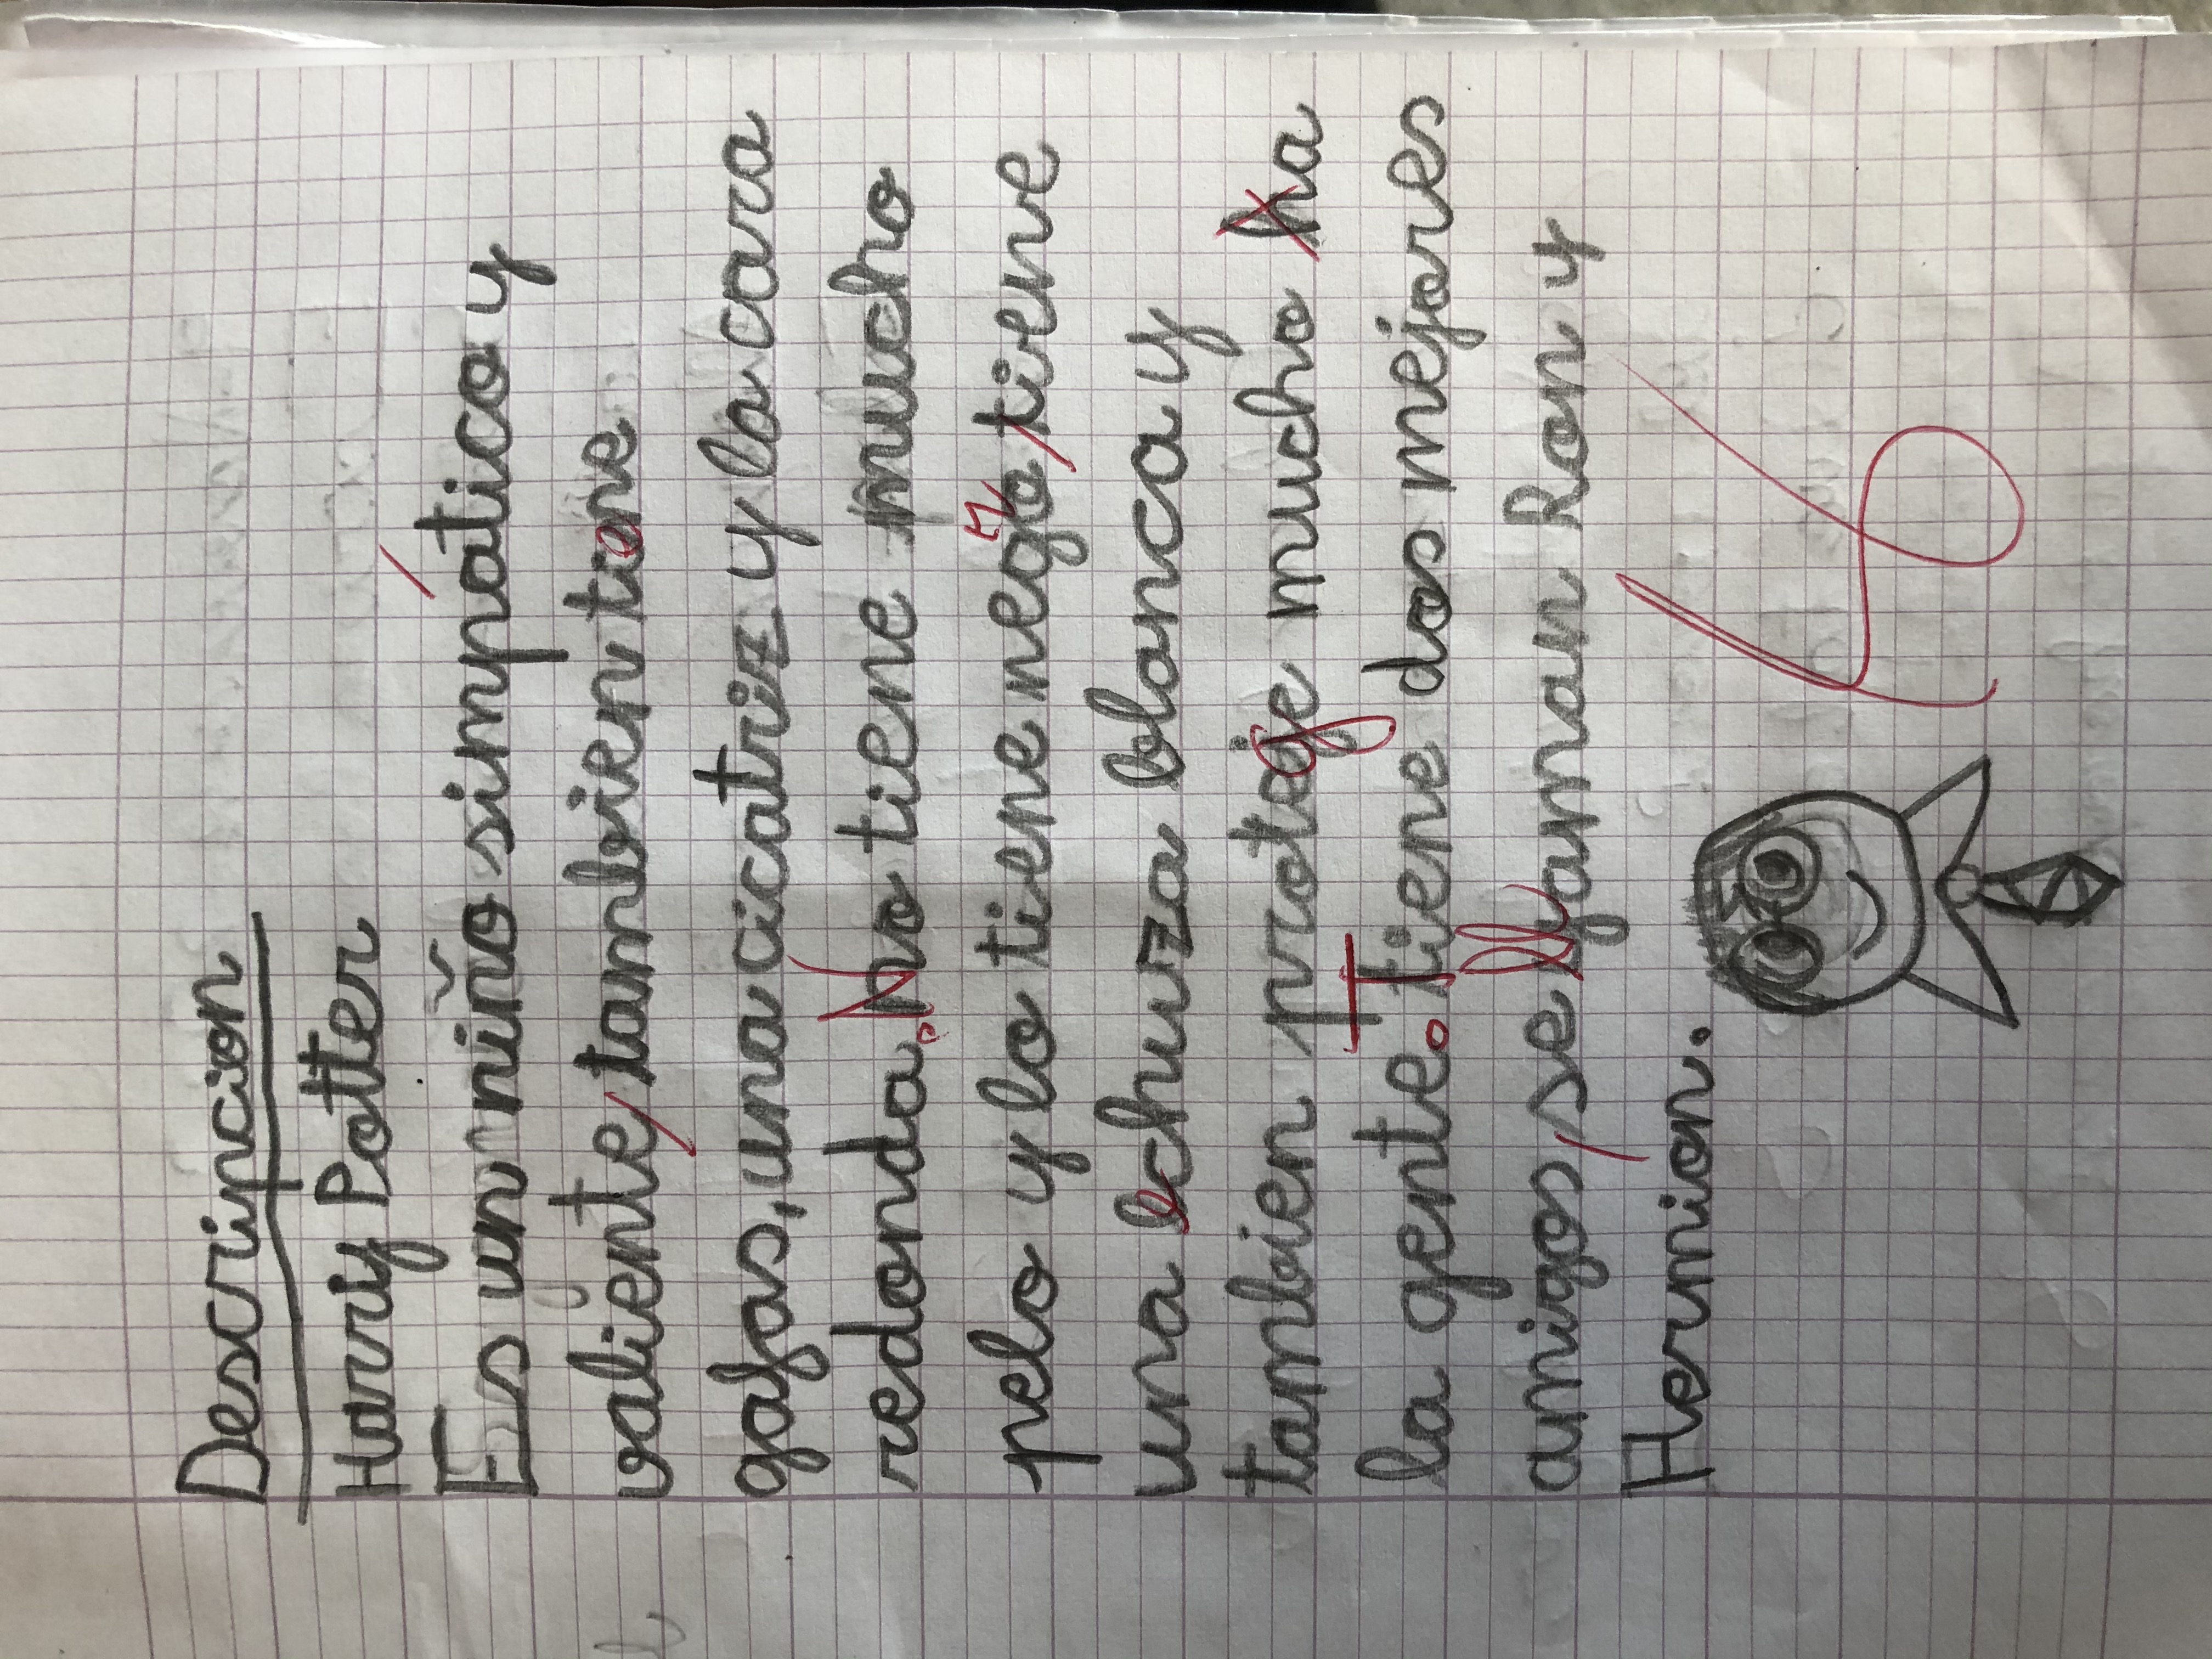 Descripcion
Harry Potter
Es un niño simpático y
valiente, tambien tiene
gafas, una cicatriz y la cara
redonda. No tiene mucho
pelo y lo tiene negro, tiene
una lechuza blanca y
tambien protege mucho ha
la gente. Tiene dos mejores
amigos, se llaman Ron y
Hermion.